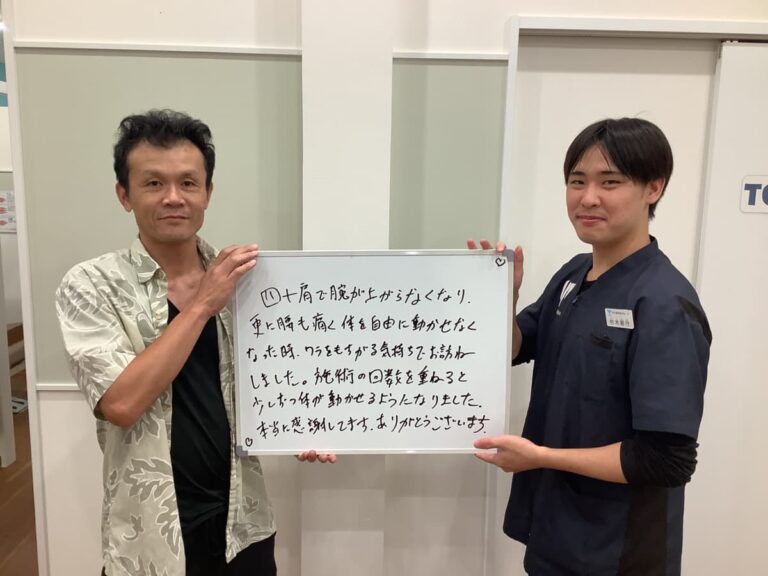 四十肩で腕が上がらなくなり、
更に腰も痛く体を自由に動かせなく
なった時、ワラをもすがる気持ちでお訪ね
しました。施術の回数を重ねると
少しずつ体が動かせるようになりました。
本当に感謝してます。ありがとうございます。
TO